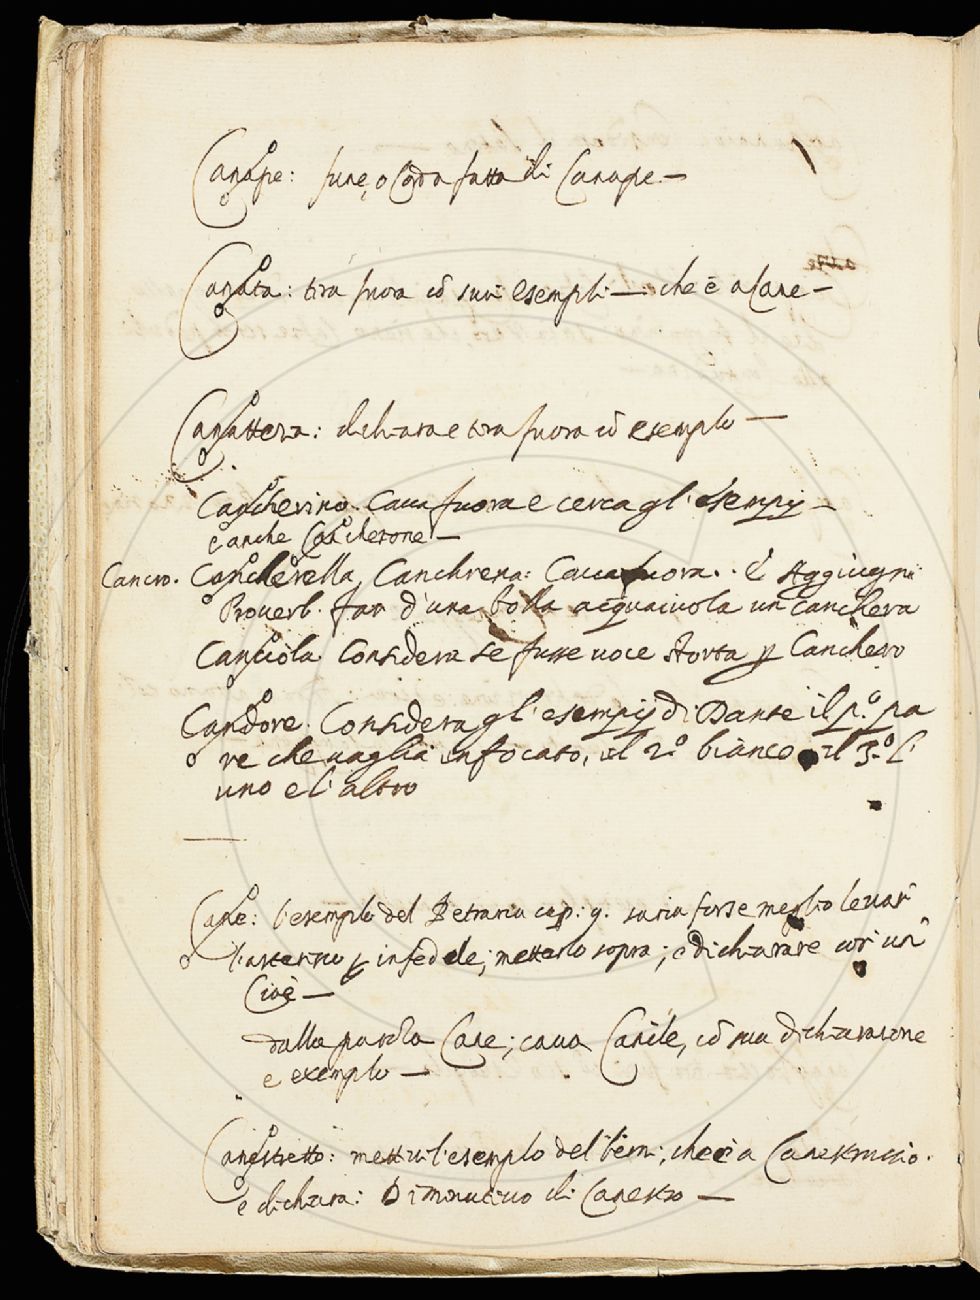 Canape: fune, o Corda fatta di Canape —
Canata: tira fuora cō suoi esempli — che è a Cane —
Canattera: dichiara e tira fuora cō esemplo —
Cancherino. Cava fuora e cerca gl'esempij —
e anche Cancherone —
Cancro. Cancherella, Canchrena: Cava fuora. E Aggiugni
Proverb. Far d'una bolla acquaiuola un canchero
Canciola Considera se fusse voce storta p Canchero
Candore. Considera gl'esempij di Dante il p.º pa
re che vaglia infocato, il 2º bianco il 3.º l'
uno e l'altro
Cane: l'esemplo del Petrarca cap: 9. saria forse meglio levar
l'asterisco p infedele; metterlo sopra; e dichiarare cori un
Cioè —
dalla parola Cane; cava Canile, cō sua dichiarazione
e exemplo —
Canestretto: metti l'esemplo del bern; che è a Canestruccio.
e dichiara: Diminutivo di Canestro —